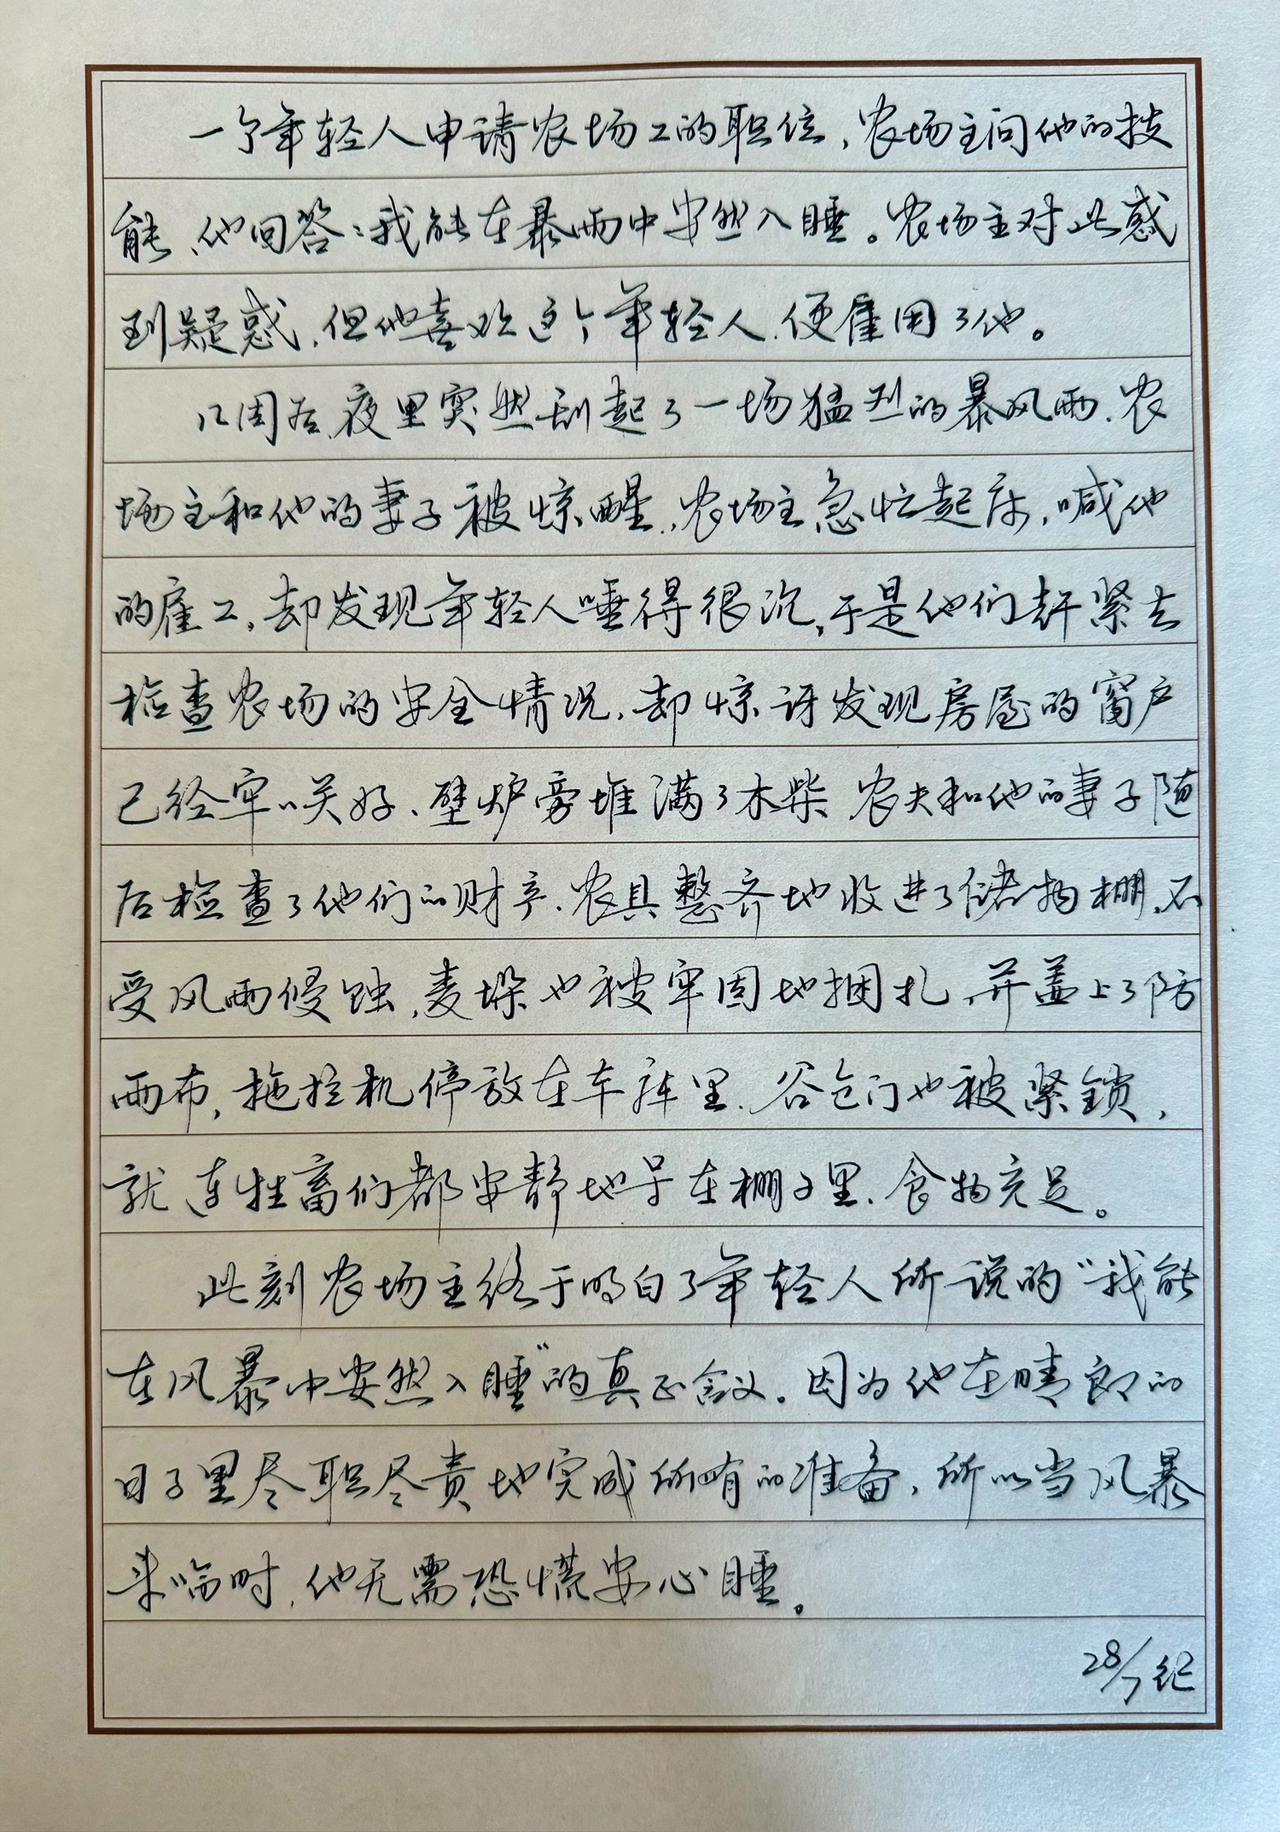 一个年轻人申请农场工的职位，农场主问他的技
能、他回答：我能在暴雨中安然入睡。农场主对此感
到疑惑，但他喜欢这个年轻人，便雇用了他。
几周后，夜里突然刮起了一场猛烈的暴风雨，农
场主和他的妻子被惊醒，农场主急忙起床，喊他
的雇工，却发现年轻人睡得很沉，于是他们赶紧去
检查农场的安全情况，却惊讶发现房屋的窗户
已经牢牢关好、壁炉旁堆满了木柴 农夫和他的妻子随
后检查了他们的财产，农具整齐地收进了储物棚，不
受风雨侵蚀，麦垛也被牢固地捆扎，并盖上了防
雨布，拖拉机停放在车库里、谷仓门也被紧锁，
就连牲畜们都安静地呆在棚子里、食物充足。
此刻农场主终于明白了年轻人所说的“我能
在风暴中安然入睡”的真正含义。因为他在晴朗的
日子里尽职尽责地完成所有的准备，所以当风暴
来临时，他无需恐慌安心睡。
28/7纪